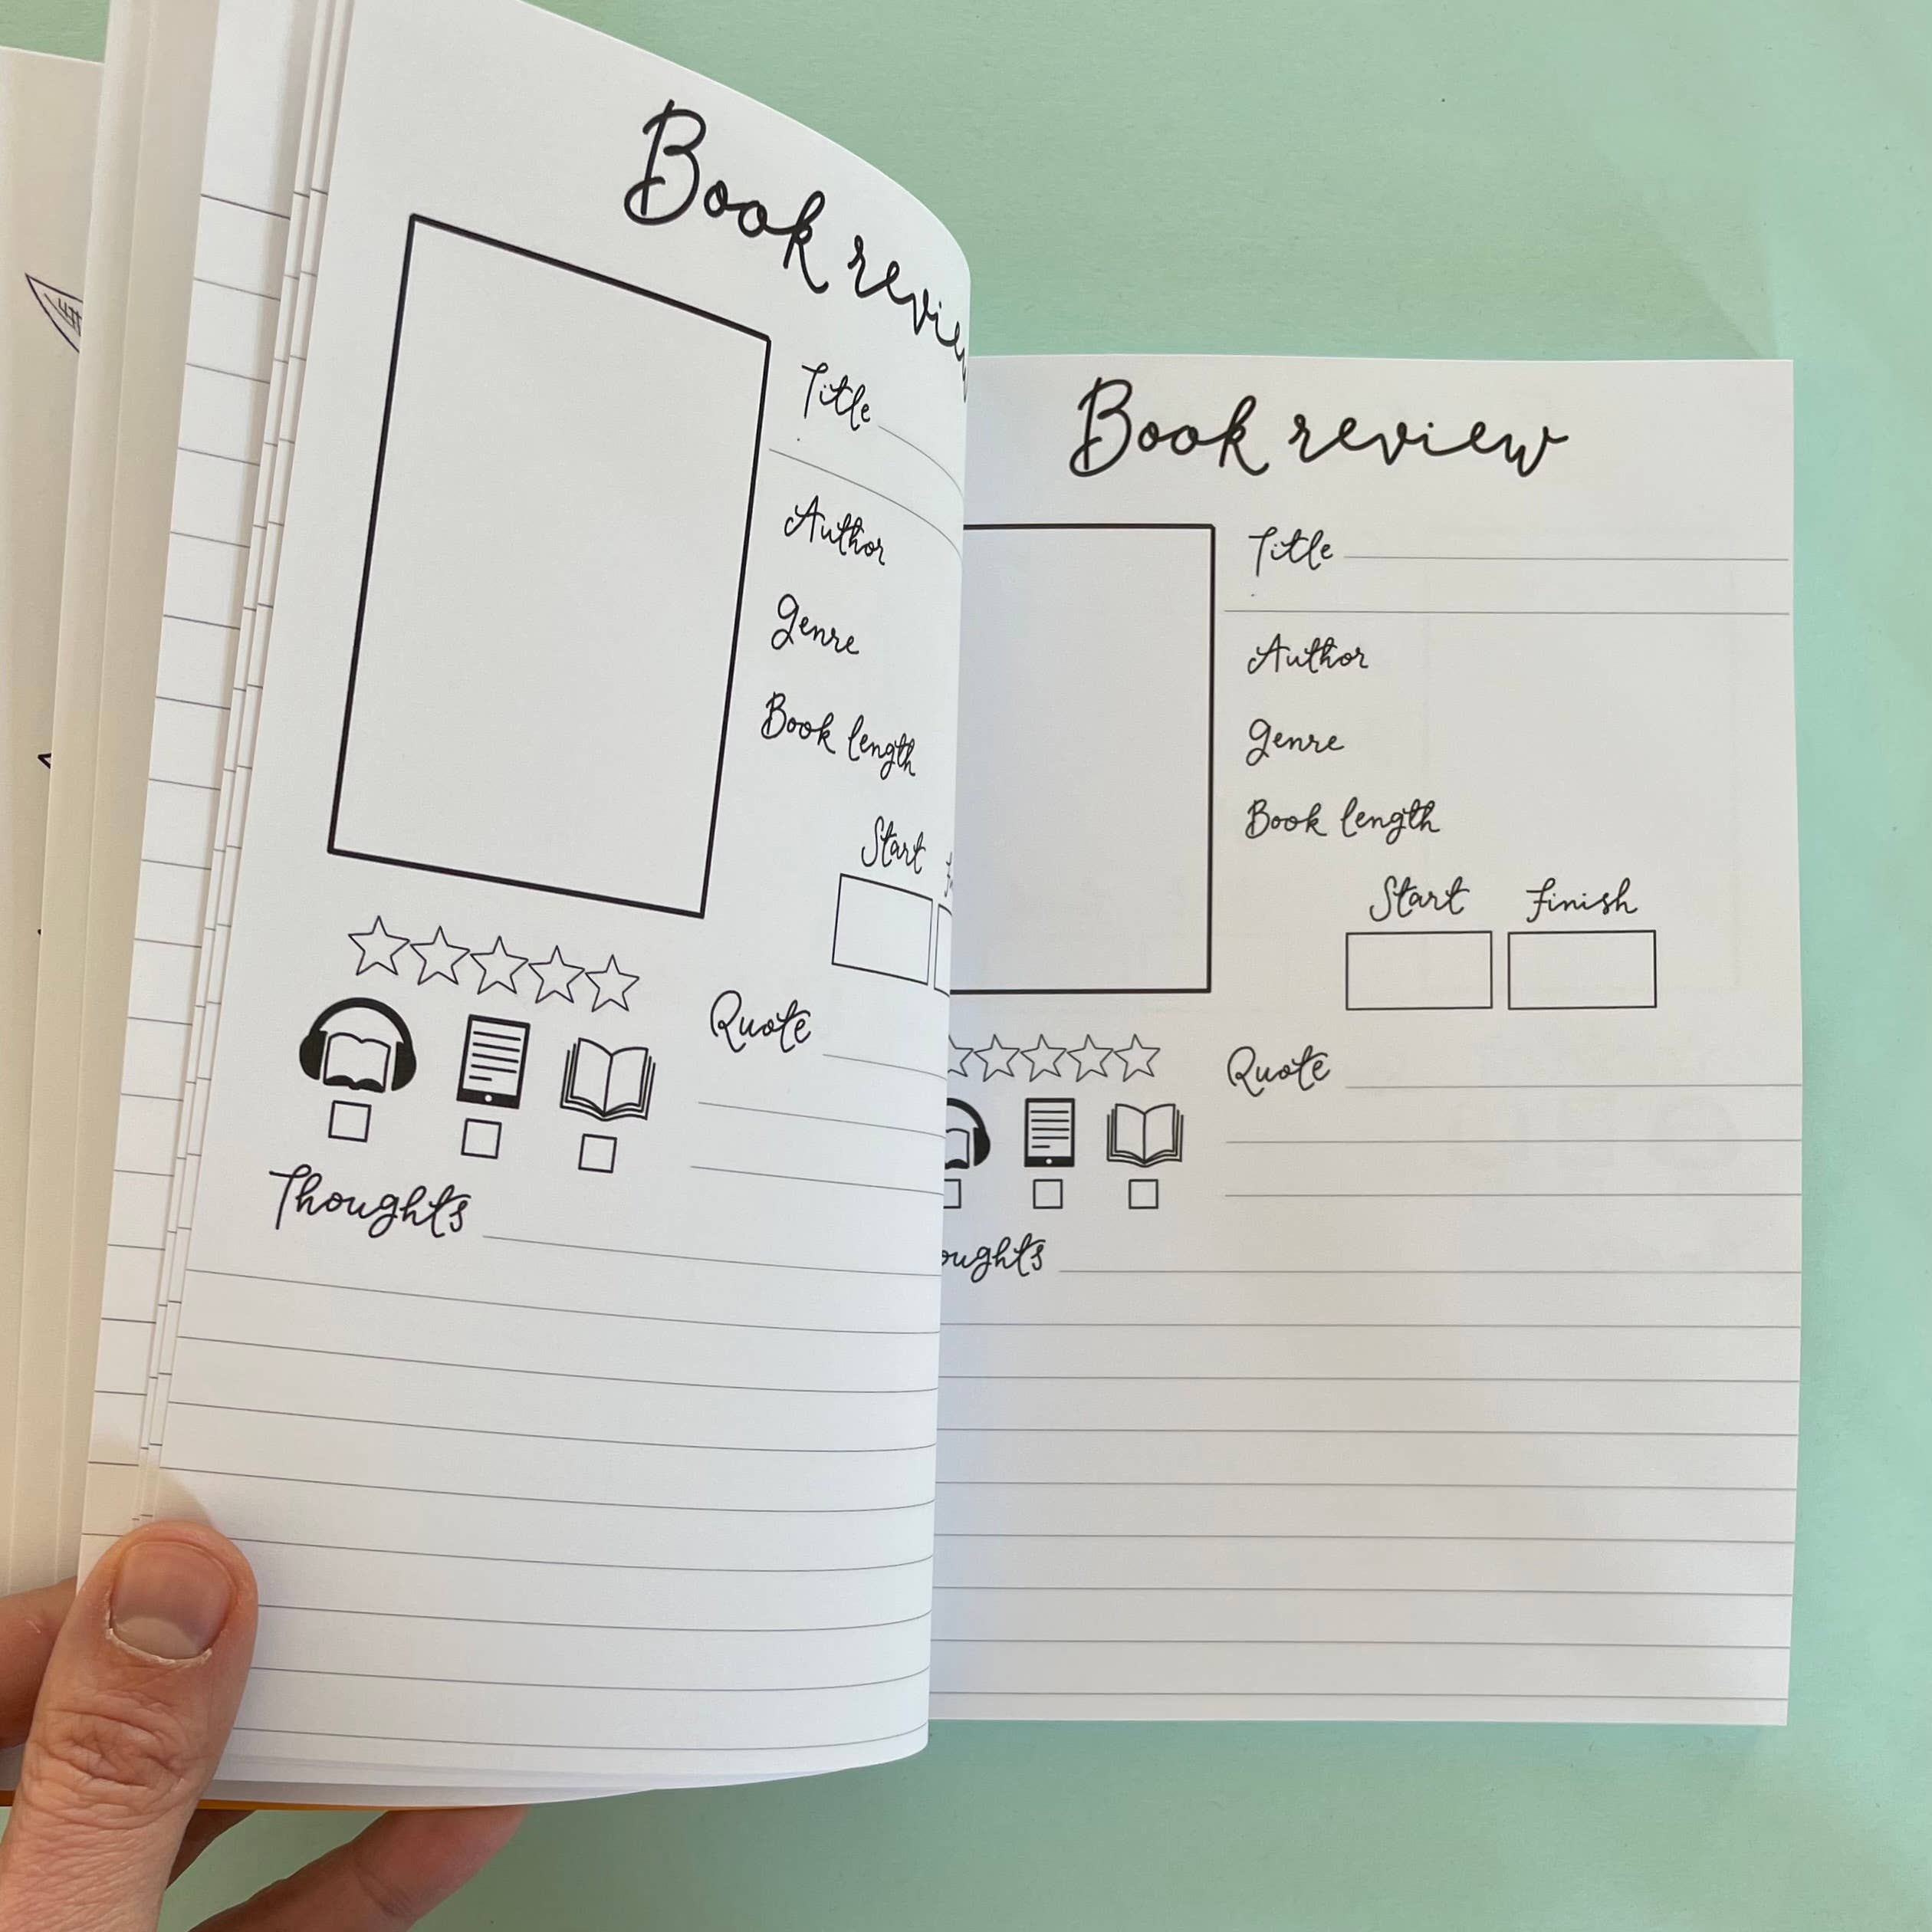 Book review
Title
Author
Genre
Book length
Start
Quote
Thoughts
Book review
Title
Author
Genre
Book length
Start Finish
Quote
oughts